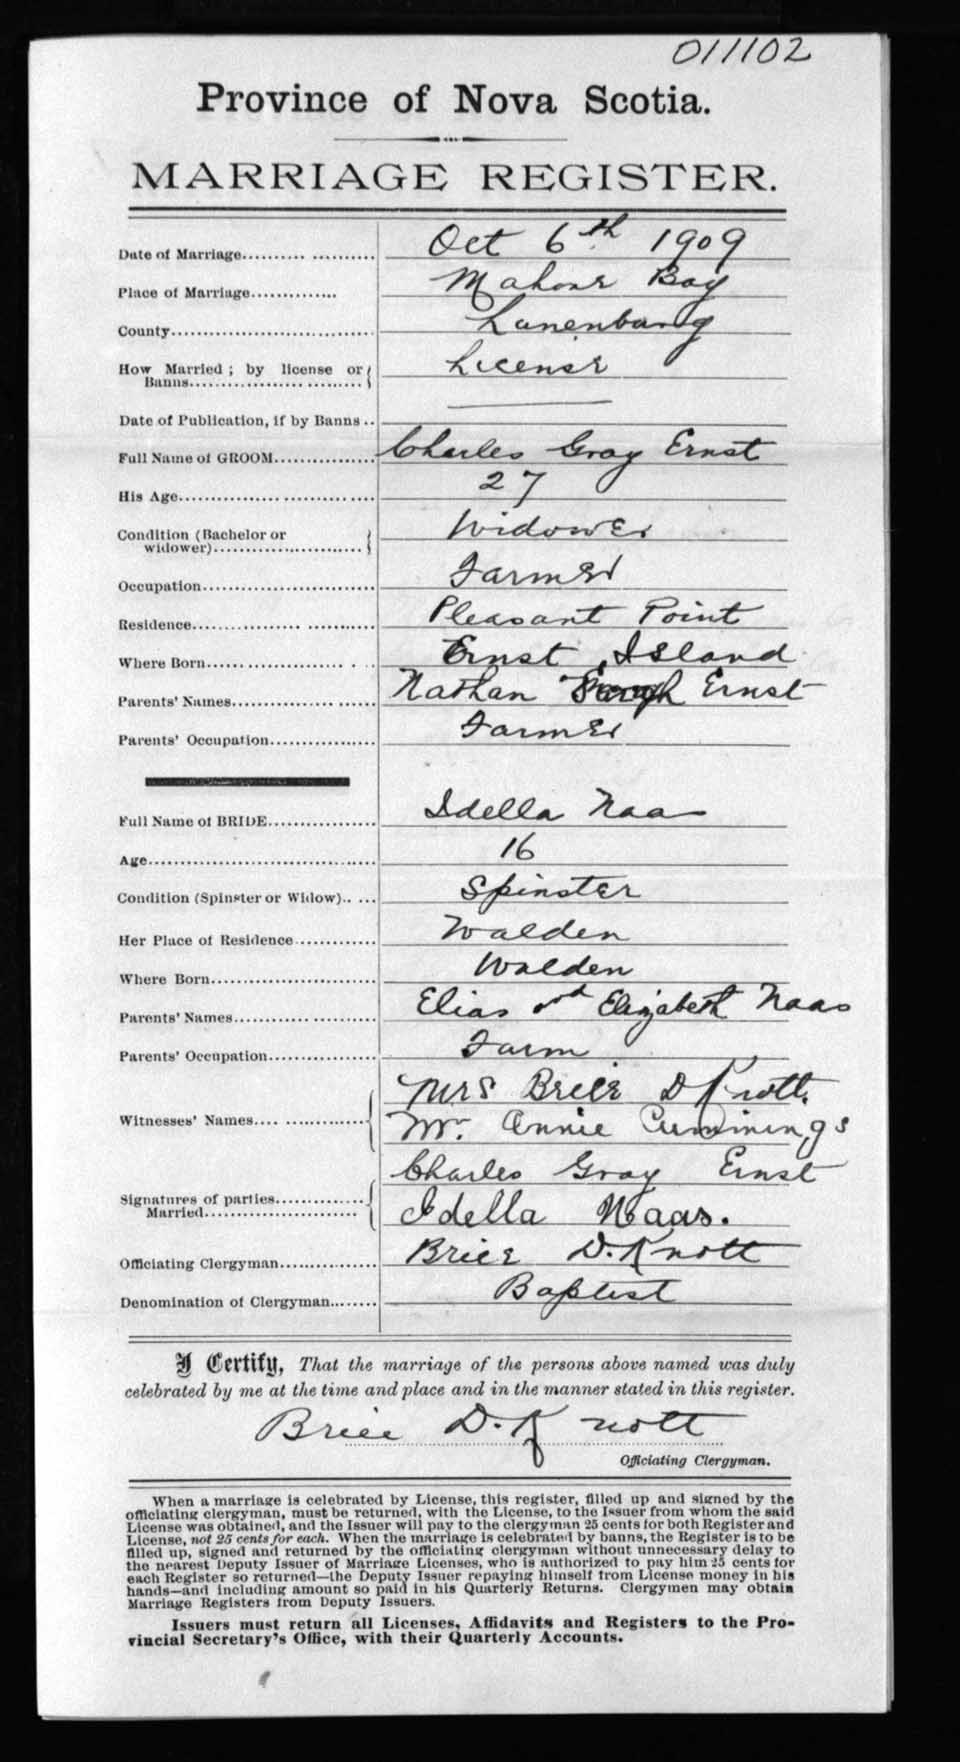 011102
Province of Nova Scotia.
MARRIAGE REGISTER.
Date of Marriage.......... ........... Oct 6th 1909
Place of Marriage.............. Mahone Bay
County............................. Lunenburg
How Married ; by license or License
Banns.................. .........
Date of Publication, if by Banns ..
Full Name of GROOM............... Charles Gray Ernst
His Age................ .............. 27
Condition (Bachelor or Widower
widower)..........................
Occupation......................... Farmer
Residence................ ........... Pleasant Point
Where Born.................. . .. Ernst Island
Parents' Names............. ...... Nathan Ernst
Parents' Occupation................ Farmer
Full Name of BRIDE................ Idella Naas
Age................................. 16
Condition (Spinster or Widow).. ... Spinster
Her Place of Residence............ Walden
Where Born........................ Walden
Parents' Names............ ......... Elias and Elizabeth Naas
Parents' Occupation................ Farm
Mrs Brice D Knott.
Witnesses' Names.... .............. Annie Cummings
Charles Gray Ernst
Signatures of parties.............
Married....................... Idella Naas.
Officiating Clergyman.............. Brice D. Knott
Denomination of Clergyman........ Baptist
I Certify, That the marriage of the persons above named was duly
celebrated by me at the time and place and in the manner stated in this register.
Brice D. Knott
Officiating Clergyman.
When a marriage is celebrated by License, this register, filled up and signed by the
officiating clergyman, must be returned, with the License, to the Issuer from whom the said
License was obtained, and the Issuer will pay to the clergyman 25 cents for both Register and
License, not 25 cents for each. When the marriage is celebrated by banns, the Register is to be
filled up, signed and returned by the officiating clergyman without unnecessary delay to
the nearest Deputy Issuer of Marriage Licenses, who is authorized to pay him 25 cents for
each Register so returned—the Deputy Issuer repaying himself from License money in his
hands—and including amount so paid in his Quarterly Returns. Clergymen may obtain
Marriage Registers from Deputy Issuers.
Issuers must return all Licenses, Affidavits and Registers to the Pro-
vincial Secretary's Office, with their Quarterly Accounts.